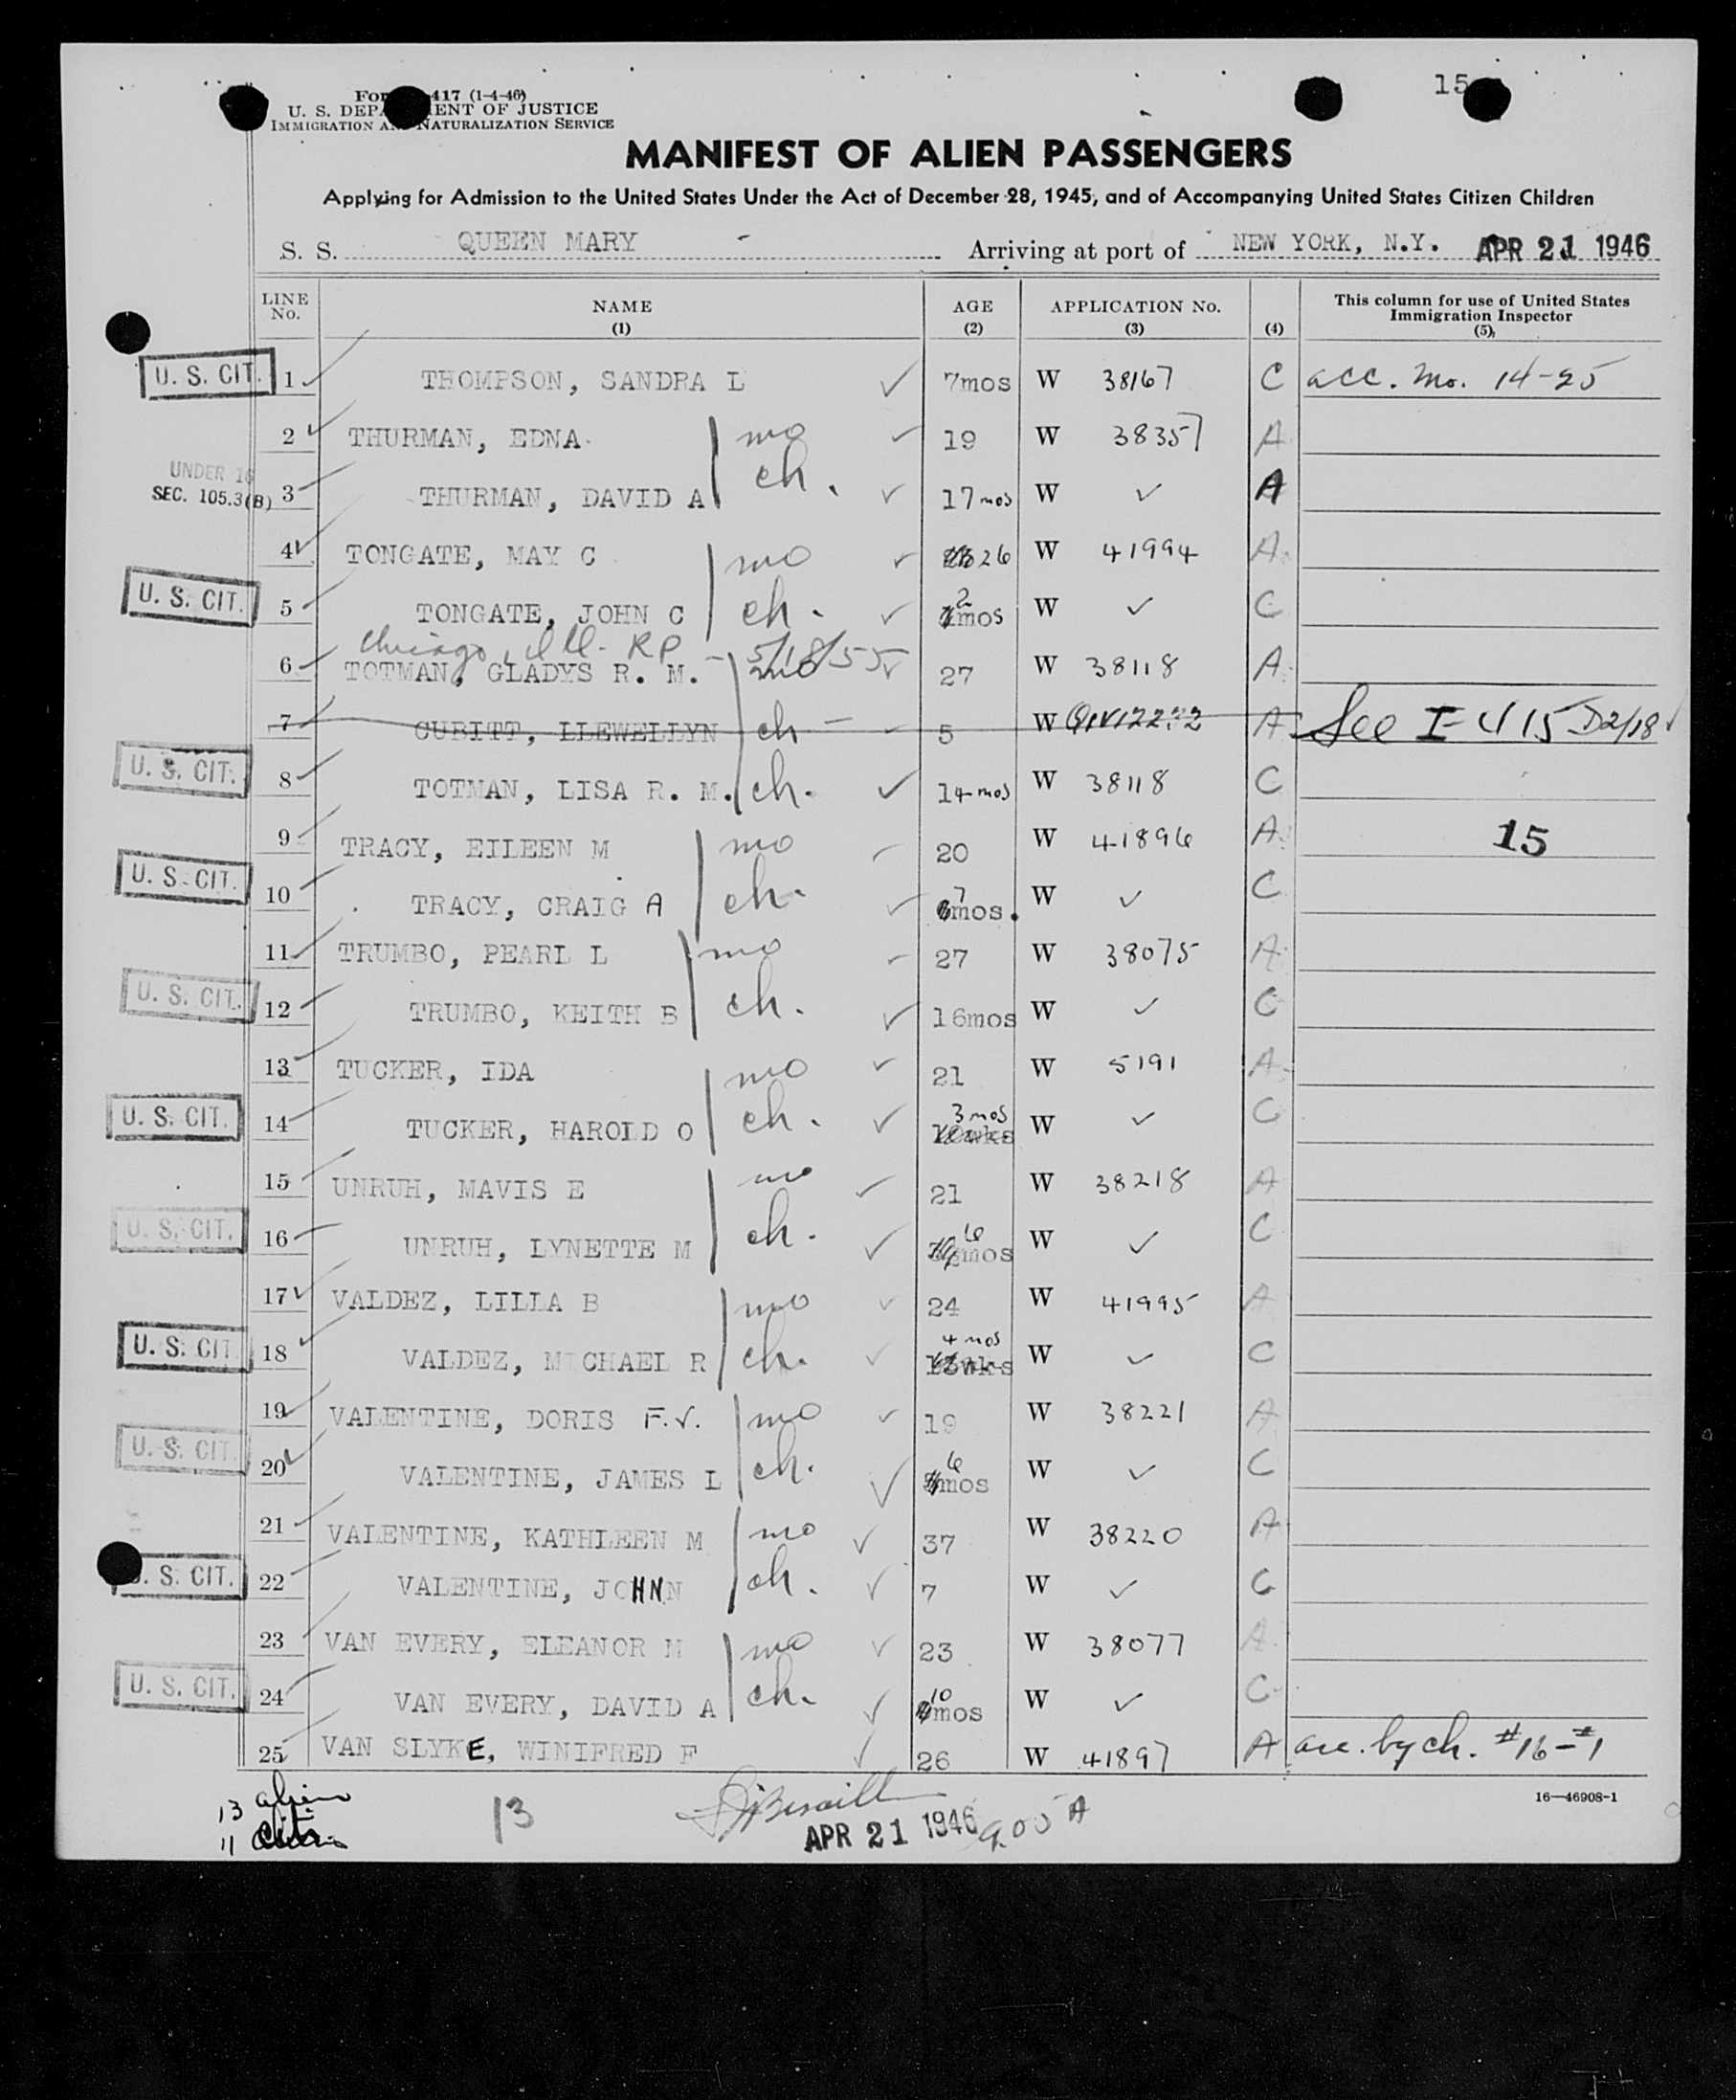 15
Form 417 (1-4-46)
U. S. DEPARTMENT OF JUSTICE
IMMIGRATION AND NATURALIZATION SERVICE
MANIFEST OF ALIEN PASSENGERS
Applying for Admission to the United States Under the Act of December 28, 1945, and of Accompanying United States Citizen Children
S. S. QUEEN MARY Arriving at port of NEW YORK, N.Y. APR 21 1946
LINE No. NAME (1) AGE (2) APPLICATION No. (3) (4) This column for use of United States Immigration Inspector (5)
U. S. CIT. 1 THOMPSON, SANDRA L 7mos W 38167 C acc. mo. 14-25
2 THURMAN, EDNA mo 19 W 38357 A
UNDER 16 SEC. 105.3(B) 3 THURMAN, DAVID A ch. 17 mos W ✓ A
4 TONGATE, MAY C mo 26 W 41994 A
U. S. CIT. 5 TONGATE, JOHN C ch. 2 mos W ✓ C
Chicago, Ill. RP - 5/18/55
6 TOTMAN, GLADYS R. M. mo 27 W 38118 A
7 CUBITT, LLEWELLYN ch 5 W A See I-415 D2/18
U. S. CIT. 8 TOTMAN, LISA R. M. ch. 14 mos W 38118 C
9 TRACY, EILEEN M mo 20 W 41896 A 15
U. S. CIT. 10 TRACY, CRAIG A ch. 7 mos. W ✓ C
11 TRUMBO, PEARL L mo 27 W 38075 A
U. S. CIT. 12 TRUMBO, KEITH B ch. 16mos W ✓ C
13 TUCKER, IDA mo 21 W 5191 A
U. S. CIT. 14 TUCKER, HAROLD O ch. 3 mos W ✓ C
15 UNRUH, MAVIS E mo 21 W 38218 A
U. S. CIT. 16 UNRUH, LYNETTE M ch. 6 mos W ✓ C
17 VALDEZ, LILLA B mo 24 W 41995 A
U. S. CIT. 18 VALDEZ, MICHAEL R ch. 4 mos W ✓ C
19 VALENTINE, DORIS F.V. mo 19 W 38221 A
U. S. CIT. 20 VALENTINE, JAMES L ch. 6 mos W ✓ C
21 VALENTINE, KATHLEEN M mo 37 W 38220 A
U. S. CIT. 22 VALENTINE, JOHN ch. 7 W ✓ C
23 VAN EVERY, ELEANOR M mo 23 W 38077 A
U. S. CIT. 24 VAN EVERY, DAVID A ch. 10 mos W ✓ C
25 VAN SLYKE, WINIFRED F 26 W 41897 A acc. by ch. #16-#1
16—46908-1
13 alien
11
13
APR 21 1946 9.05 A